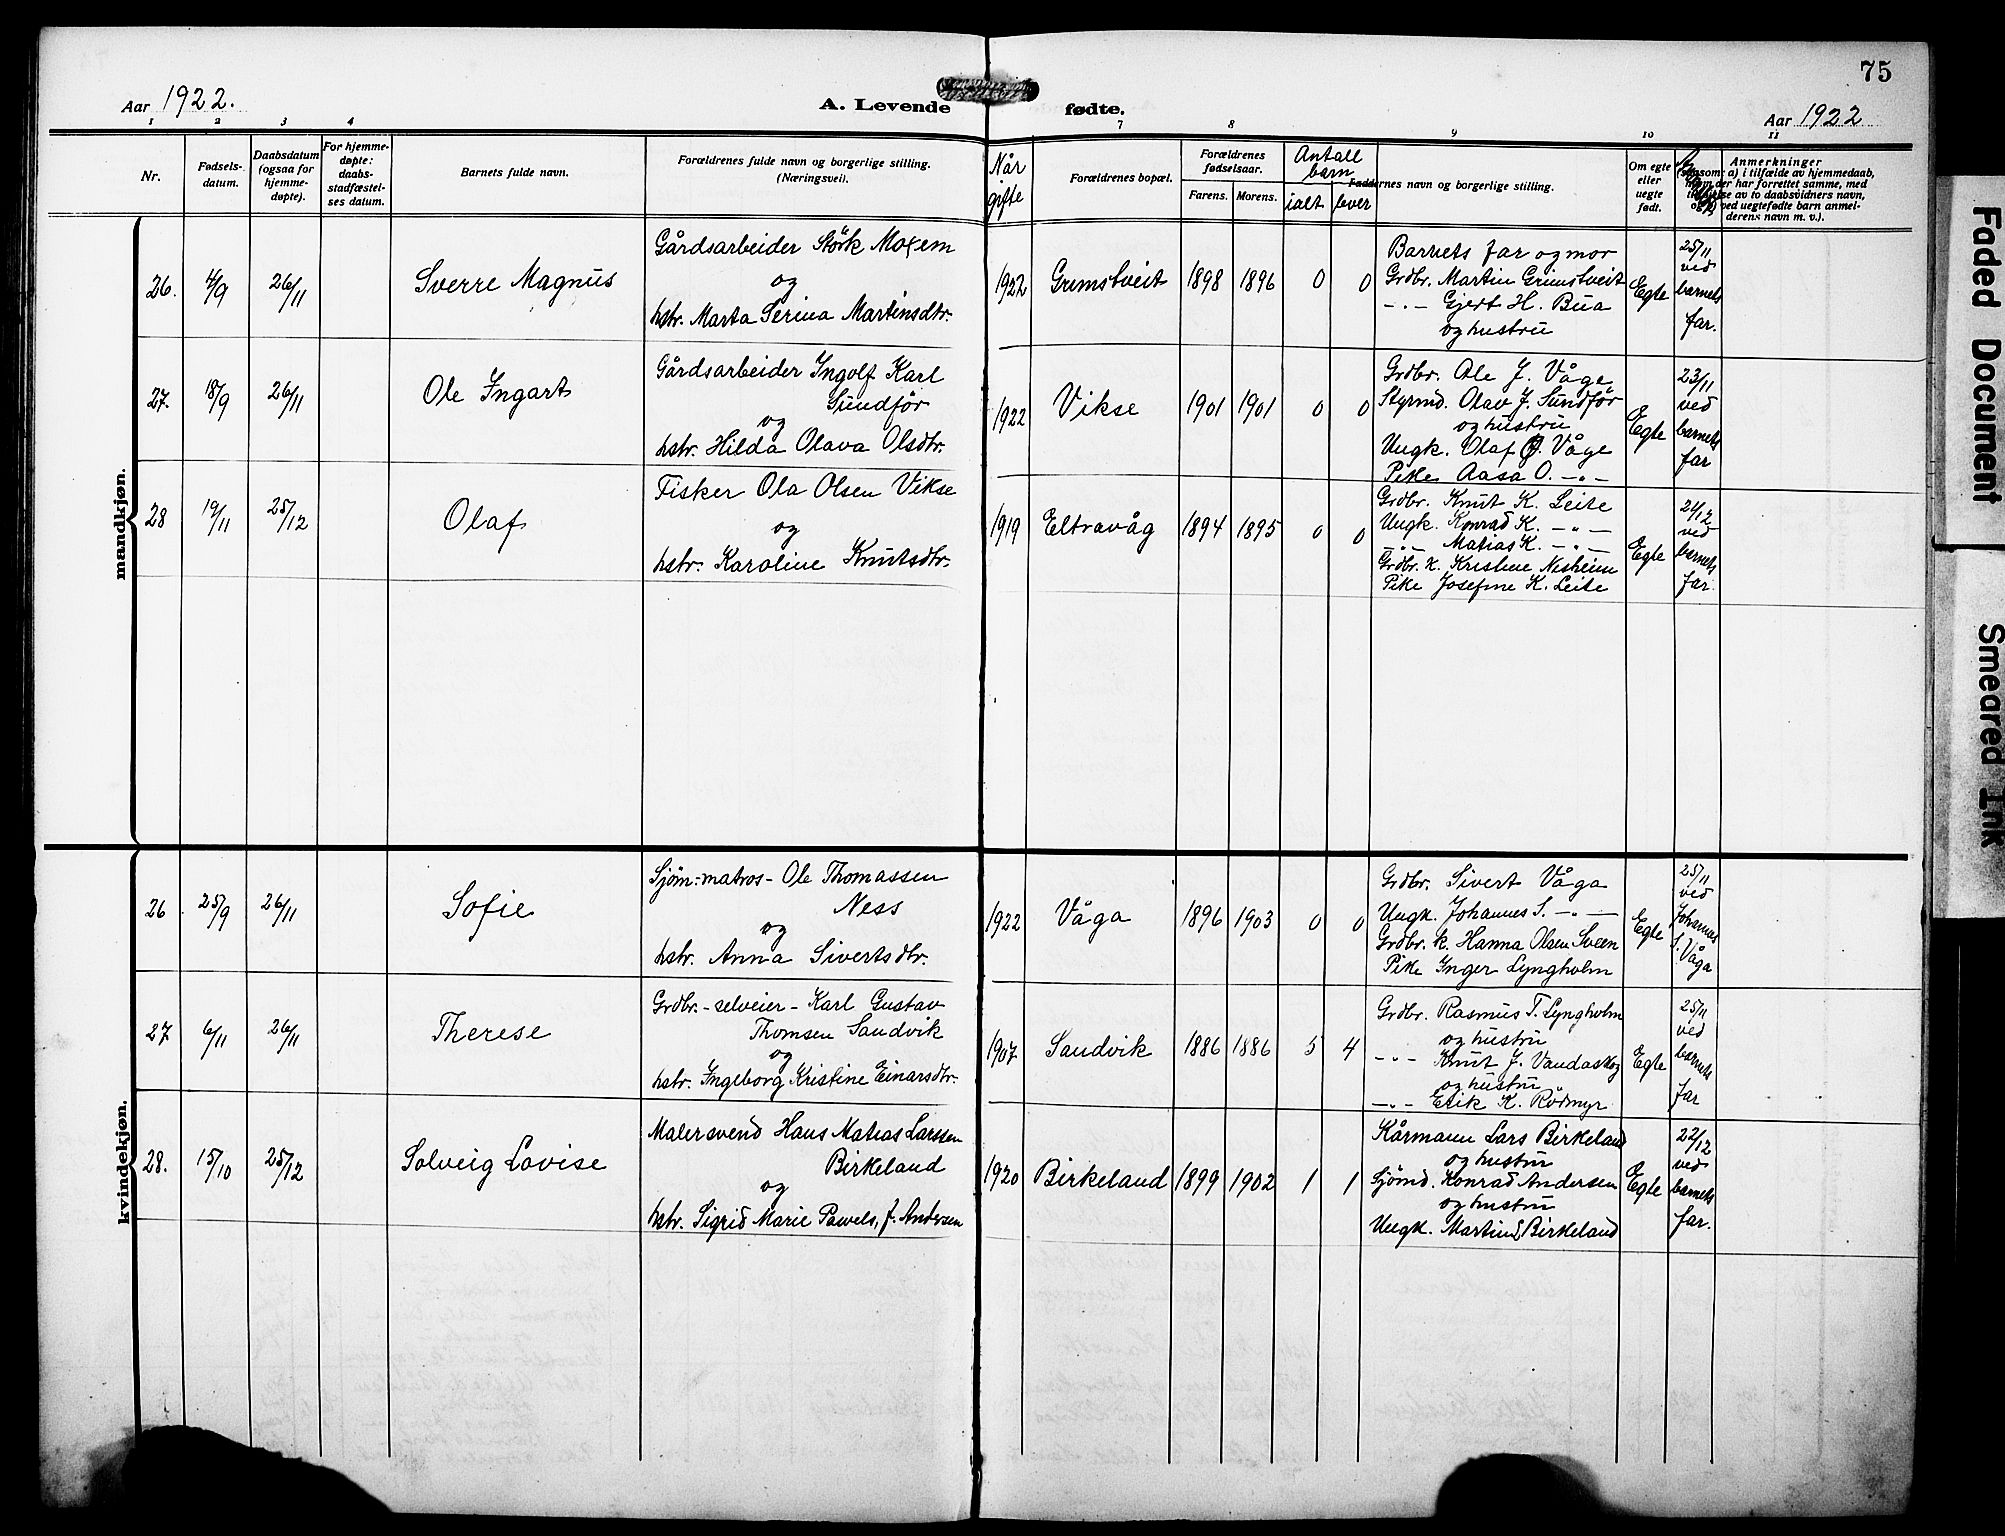 75
Aar 1922.
A. Levende fødte.
Aar 1922
1 2 3 4 7 8 9 10 11
Nr.
Fødsels-
datum.
Daabsdatum
(ogsaa for
hjemme-
døpte).
For hjemme-
døpte:
daabs-
stadfæstel-
ses datum.
Barnets fulde navn.
Forældrenes fulde navn og borgerlige stilling.
(Næringsvei).
Når
gifte
Forældrenes bopæl.
Forældrenes
fødselsaar.
Farens. Morens.
Antall
barn
ialt lever
Faddernes navn og borgerlige stilling.
Om egte
eller
uegte
født.
Anmerkninger
(saasom: a) i tilfælde av hjemmedaab,
hvem der har forrettet samme, med
av to daabsvidners navn,
ved uegtefødte barn anmel-
derens navn m. v.).
mandkjøn.
26. 4/9 26/11 Sverre Magnus
Gårdsarbeider Störk Moxem
og
hstr. Marta Serina Martinsdtr.
1922 Grimstveit 1898 1896 0 0
Barnets far og mor
Grdbr. Martin Grimstveit
-"- Gjert H. Bua
og hustru
Egte
25/11
ved
barnets
far.
27. 18/9 26/11 Ole Ingart
Gårdsarbeider Ingolf Karl
Sundför
og
hstr. Hilda Olava Olsdtr.
1922 Vikse 1901 1901 0 0
Grdbr. Ole J. Våge
Styrmd. Olav J. Sundför
og hustru
Ungk. Olaf O. Våge
Pike Aasa O. -"-
Egte
23/11
ved
barnets
far
28 19/11 25/12 Olaf
Fisker Ola Olsen Vikse
og
hstr. Karoline Knutsdtr.
1919 Eltravåg 1894 1895 0 0
Grdbr. Knut K. Leite
Ungk. Konrad K. -"-
-"- Matias K. -"-
Grdbr. k. Kristine Nesheim
Pike Josefine K. Leite
Egte
21/12
ved
barnets
far.
kvindekjøn.
26 25/9 26/11 Sofie
Sjöm.-matros- Ole Thomassen
Ness
og
hstr. Anna Sivertsdtr.
1922 Våga 1896 1903 0 0
Grdbr. Sivert Våga
Ungk. Johannes S. -"-
Grdbr. k. Hanna Olsen Sveen
Pike Inger Lyngholm
Egte
25/11
ved
Johannes
S. Våga
27 6/11 26/11 Therese
Grdbr.-selveier- Karl Gustav
Thomsen Sandvik
og
hstr. Ingeborg Kristine Einarsdtr.
1907 Sandvik 1886 1886 5 4
Grdbr. Rasmus T. Lyngholm
og hustru
-"- Knut J. Vandaskog
og hustru
-"- Erik K. Rödmyr
Egte
25/11
ved
barnets
far
28. 15/10 25/12 Solveig Lovise
Malersvend Hans Matias Larssen
Birkeland
og
hstr. Sigrid Marie Pawels, f. Andersen
1920 Birkeland 1899 1902 1 1
Kårmann Lars Birkeland
og hustru
Sjömd. Konrad Andersen
og hustru
Ungk. Martin L. Birkeland
Egte
22/12
ved
barnets
far.
Faded Document
Smeared Ink